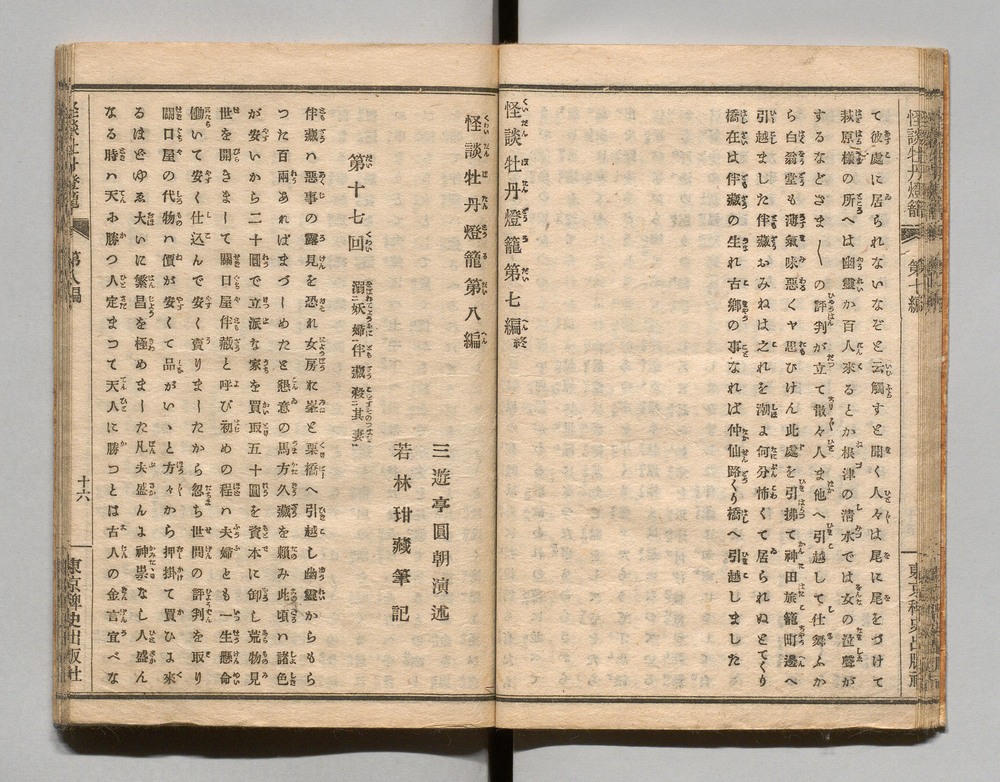 怪談牡丹燈籠
第七編
て彼處に居られないなどと云觸すと聞く人々は尾に尾をつけて
萩原様の所へは幽靈が百人來るとか根津の清水では女の泣聲が
するなどさま〲の評判が立て散々人ま他へ引越して仕舞ふか
ら白翁堂も薄氣味惡くヤ思ひけん此處を引拂て神田旅籠町邊へ
引越ました伴藏おみねは之れを潮ょ何分怖くて居られぬとてくり
橋在は伴藏の生れ古鄉の事なれば仲仙路くり橋へ引越しました
怪談牡丹燈籠第七編終
怪談牡丹燈籠第八編
三遊亭圓朝演述
若林玵藏筆記
第十七回 溺二妖婦一伴藏殺二其妻一
伴藏ハ惡事の露見を恐れ女房れ峯と栗橋へ引越し幽靈からもら
つた百兩あればまづーめたと懇意の馬方久藏を賴み此頃ハ諸色
が安いから二十圓で立派な家を買取五十圓を資本に卸し荒物見
世を開きまーて關口屋伴藏と呼び初めの程ハ夫婦とも一生懸命
働いて安く仕込んで安く賣りまーたから忽ち世間の評判を取り
關口屋の代物ハ價が安くて品がいゝと方々から押掛て買ひょ來
るほどゆゑ大いに繁昌を極めまーた凡夫盛んょ神祟なし人盛ん
なる時ハ天お勝つ人定まつて天人に勝つとは古人の金言宜べな
第八編
十六
東京稗史出版社